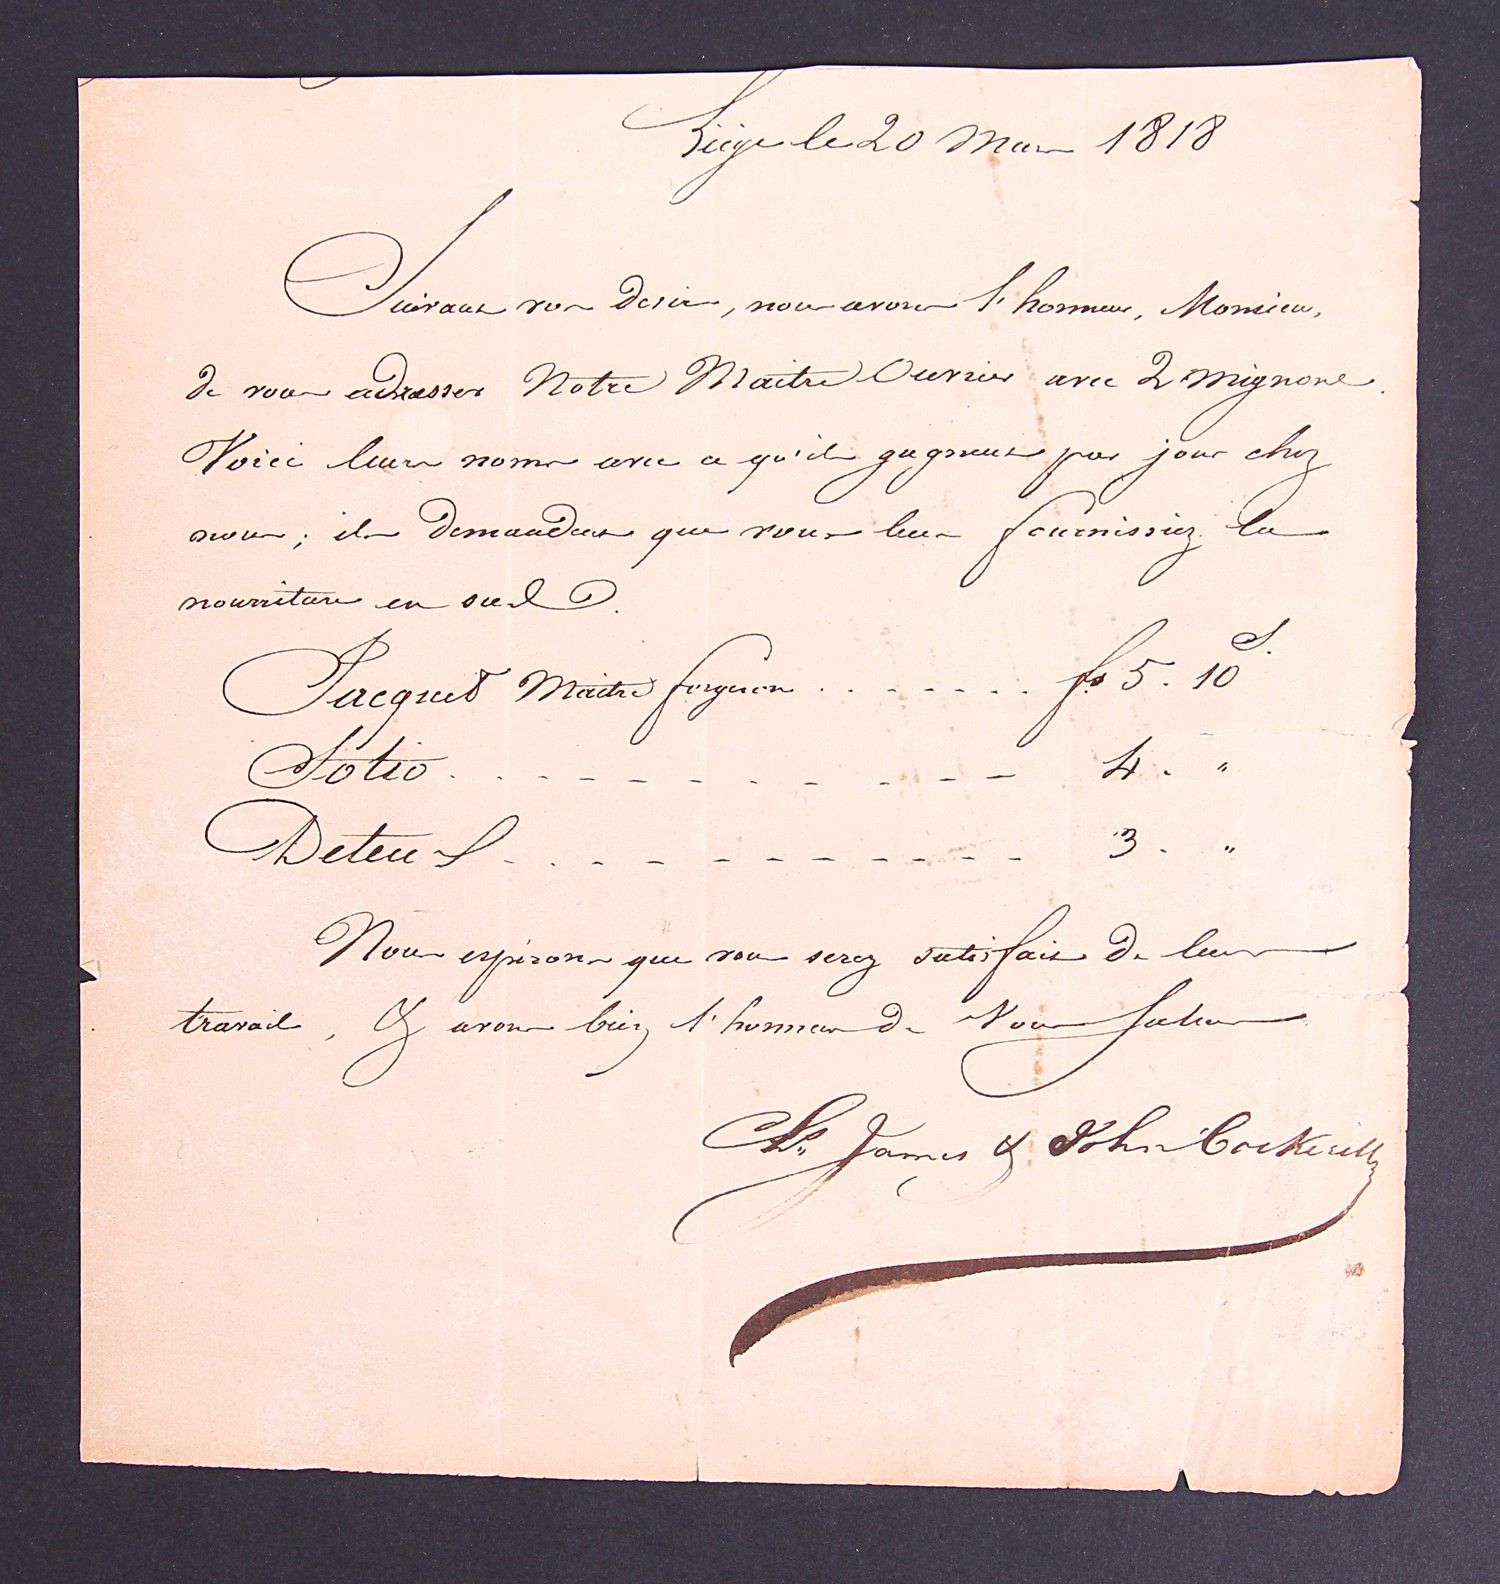 Liége le 20 Mars 1818
Suivant vos desirs, nous avons l'honneur, Monsieur,
de vous adresser Notre Maitre Ouvrier avec 2 mignons.
Voici leurs noms avec ce qu'ils gagnent par jour chez
nous; ils demandent que vous leur fournissiez la
nourriture en sus.
Jacquet Maitre forgeron . . . . . . . . fs 5. 10 S.
Sotio . . . . . . . . . . . . 4. "
. . . . . . . . . . . . 3. "
Nous espérons que vous serez satisfait de leur
travail, & avons bien l'honneur de Vous saluer
James & John Cockerill